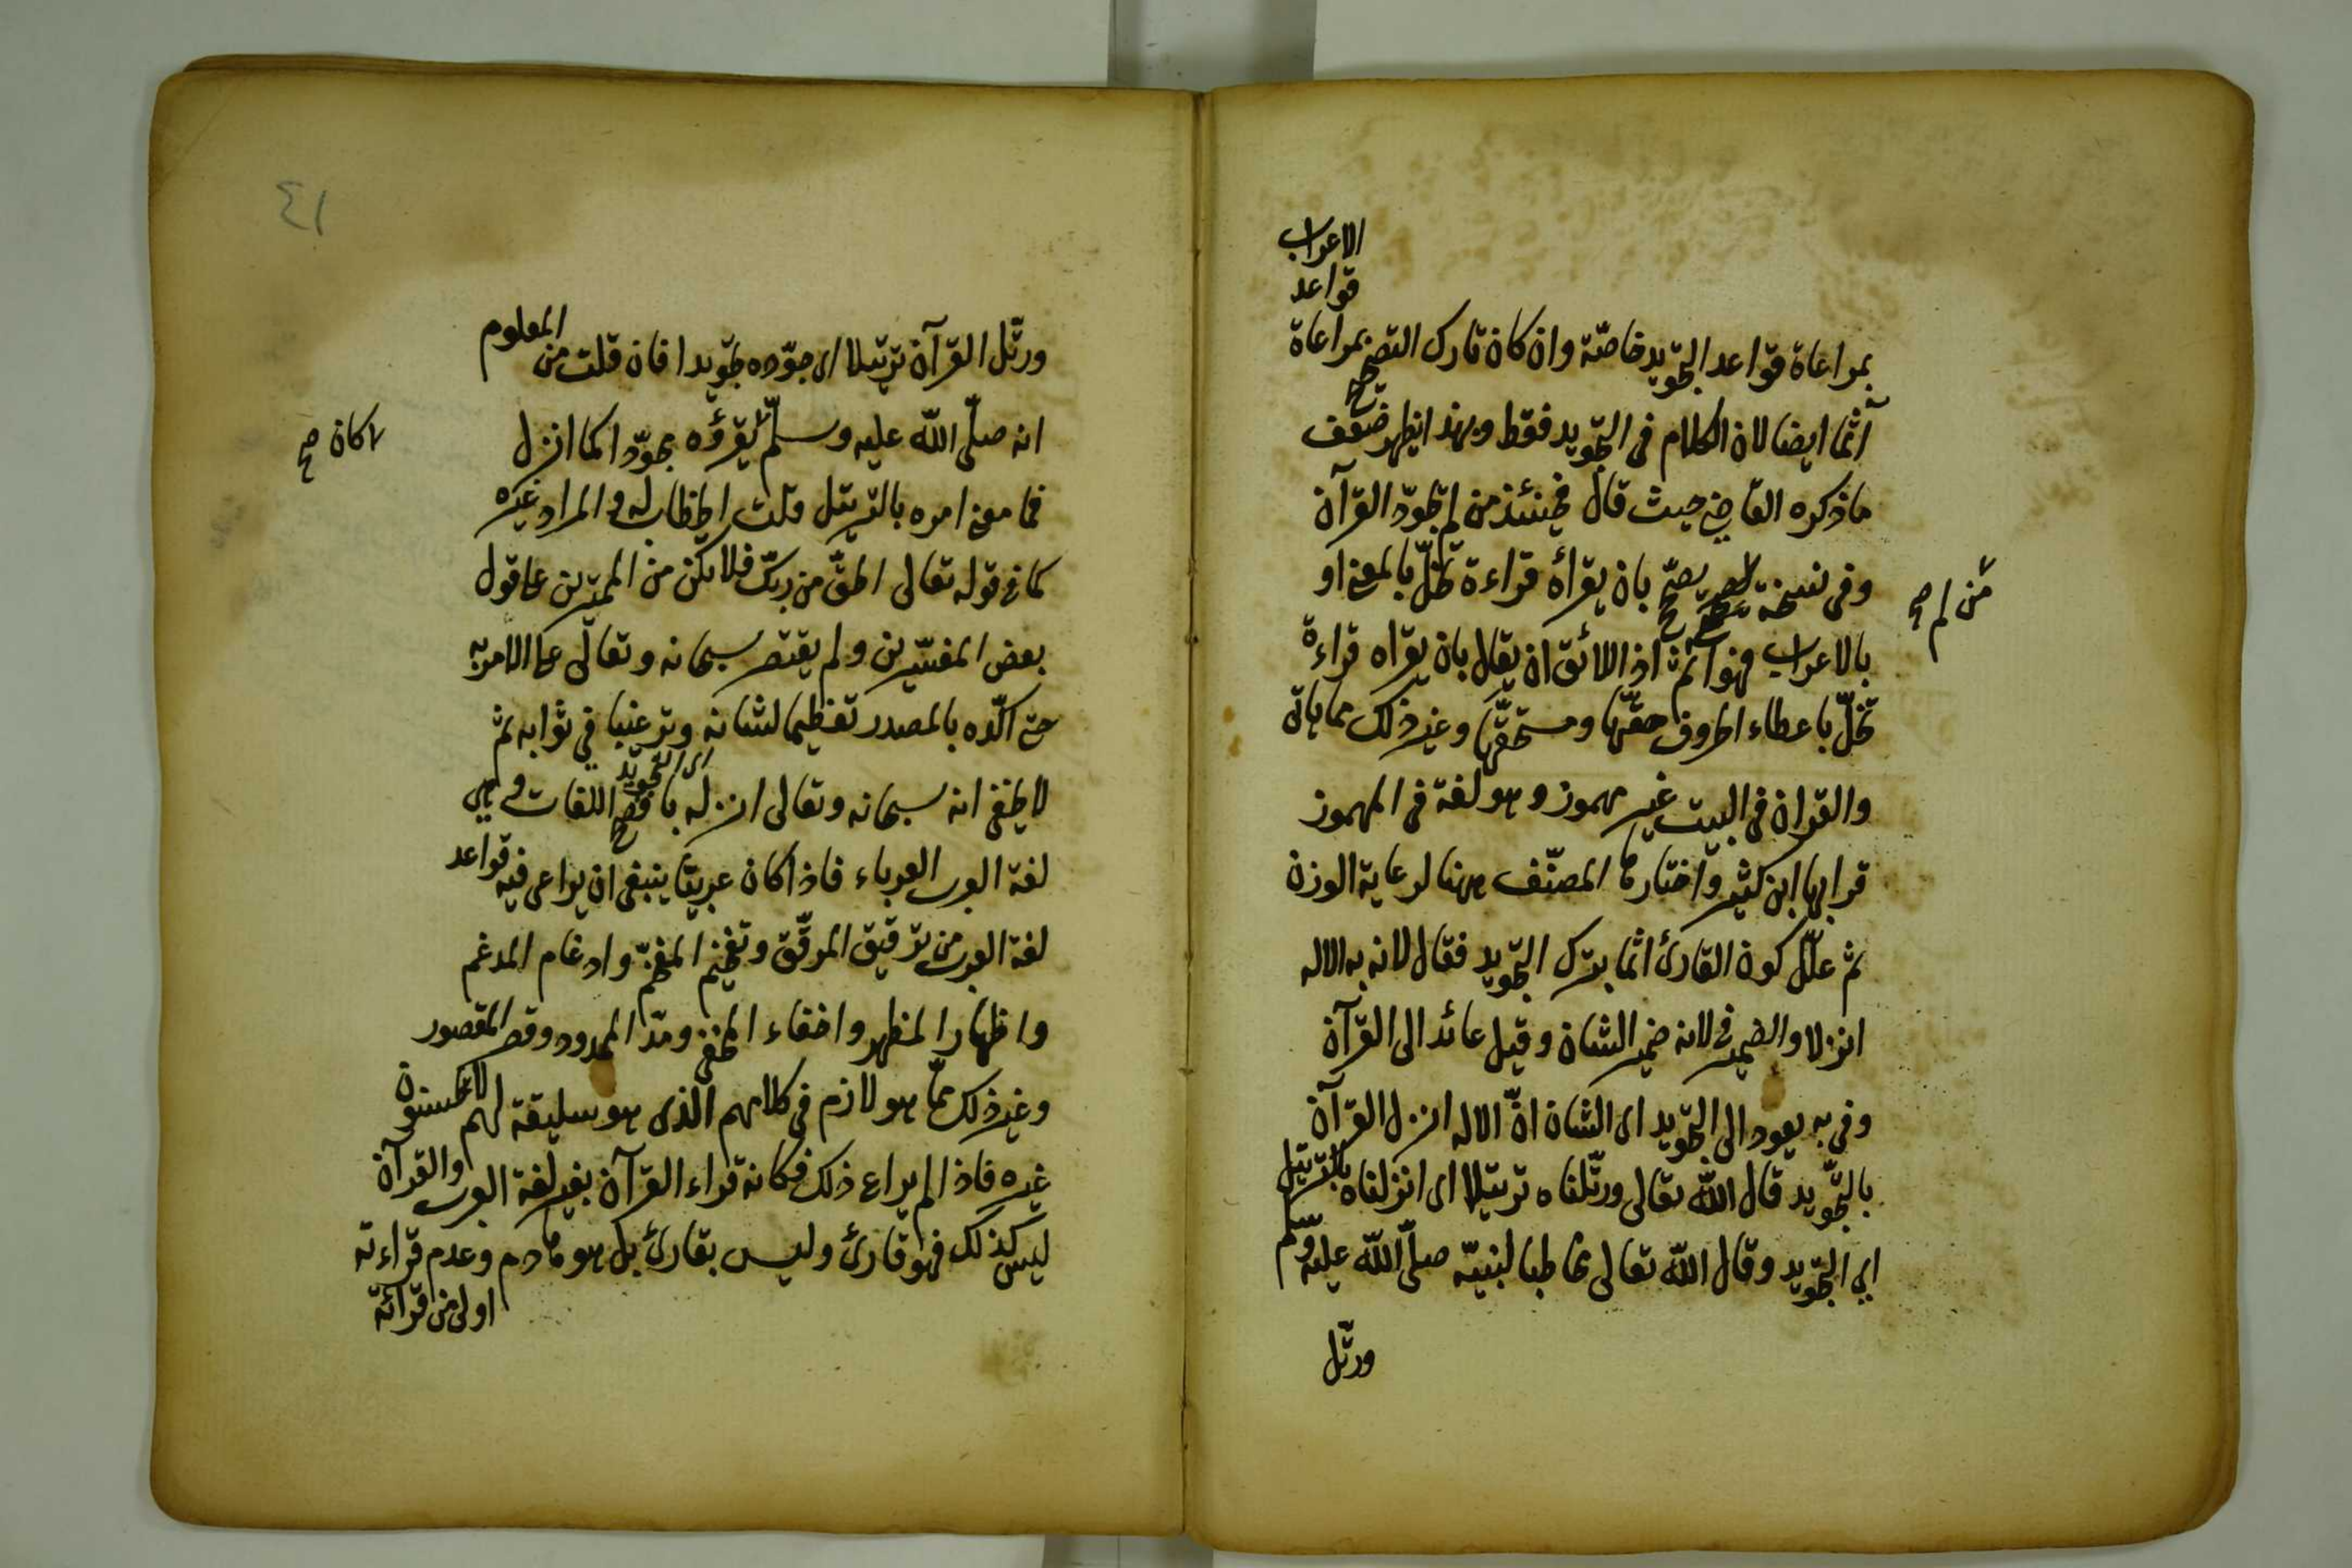 بمراعاة قواعد التجويد خاصّة وان كان تارك التصحيح بمراعاة
قواعد
الاعراب
آثما ايضا لان الكلام فى التجويد فقط وبهذا يظهر ضعف
ما ذكره القاضى حيث قال فحينئذ من لم يجوّد القرآن
وفى نسخة من لم يصحّح بان يقرأه قراءة تخلّ بالمعنى او
من لم صح
بالاعراب فهو آثم اذ اللائق ان يقال بان يقراه قراءة
تخلّ باعطاء الحروف حقّها ومستحقّها وغير ذلك مما ياتى
والقران فى البيت غير مهموز وهو لغة فى المهموز
قرا بها ابن كثير واختارها المصنّف ههنا لرعاية الوزن
ثم علّل كون القارئ آثما بترك التجويد فقال لانه به الاله
انزلا والضمير فى لانه ضمير الشان وقيل عائد الى القرآن
وفى به يعود الى التجويد اى الشان انّ الاله انزل القرآن
بالتجويد قال اللّه تعالى ورتّلناه ترتيلا اى انزلناه بالترتيل
اى التجويد وقال اللّه تعالى مخاطبا لنبيّه صلّى اللّه عليه وسلّم
ورتّل
٤١
ورتّل القرآن ترتيلا اى جوّده تجويدا فان قلت من المعلوم
انه صلّى اللّه عليه وسلّم يقرؤه مجوّدا كما انزل
كان صح
فما معنى امره بالترتيل قلت الخطاب له والمراد غيره
كما فى قوله تعالى الحقّ من ربّك فلا تكن من الممترين على قول
بعض المفسّرين ولم يقتصر سبحانه وتعالى على الامر به
حتى اكّده بالمصدر تعظيما لشانه وترغيبا فى ثوابه ثم
اى التجويد
لا يخفى انه سبحانه وتعالى انزله بافصح اللغات وهى
لغة العرب العرباء فاذا كان عربيّا ينبغى ان يراعى فيه قواعد
لغة العرب من ترقيق المرقّق وتفخيم المفخّم وادغام المدغم
واظهار المظهر واخفاء المخفى ومدّ الممدود وقصر المقصور
وغير ذلك ممّا هو لازم فى كلامهم الذى هو سليقة لهم لا يحسنون
غيره فاذا لم يراع ذلك فكانه قراء القرآن بغير لغة العرب والقرآن
ليس كذلك فهو قارئ وليس بقارئ بل هو هادم وعدم قراءته
اولى من قرائة